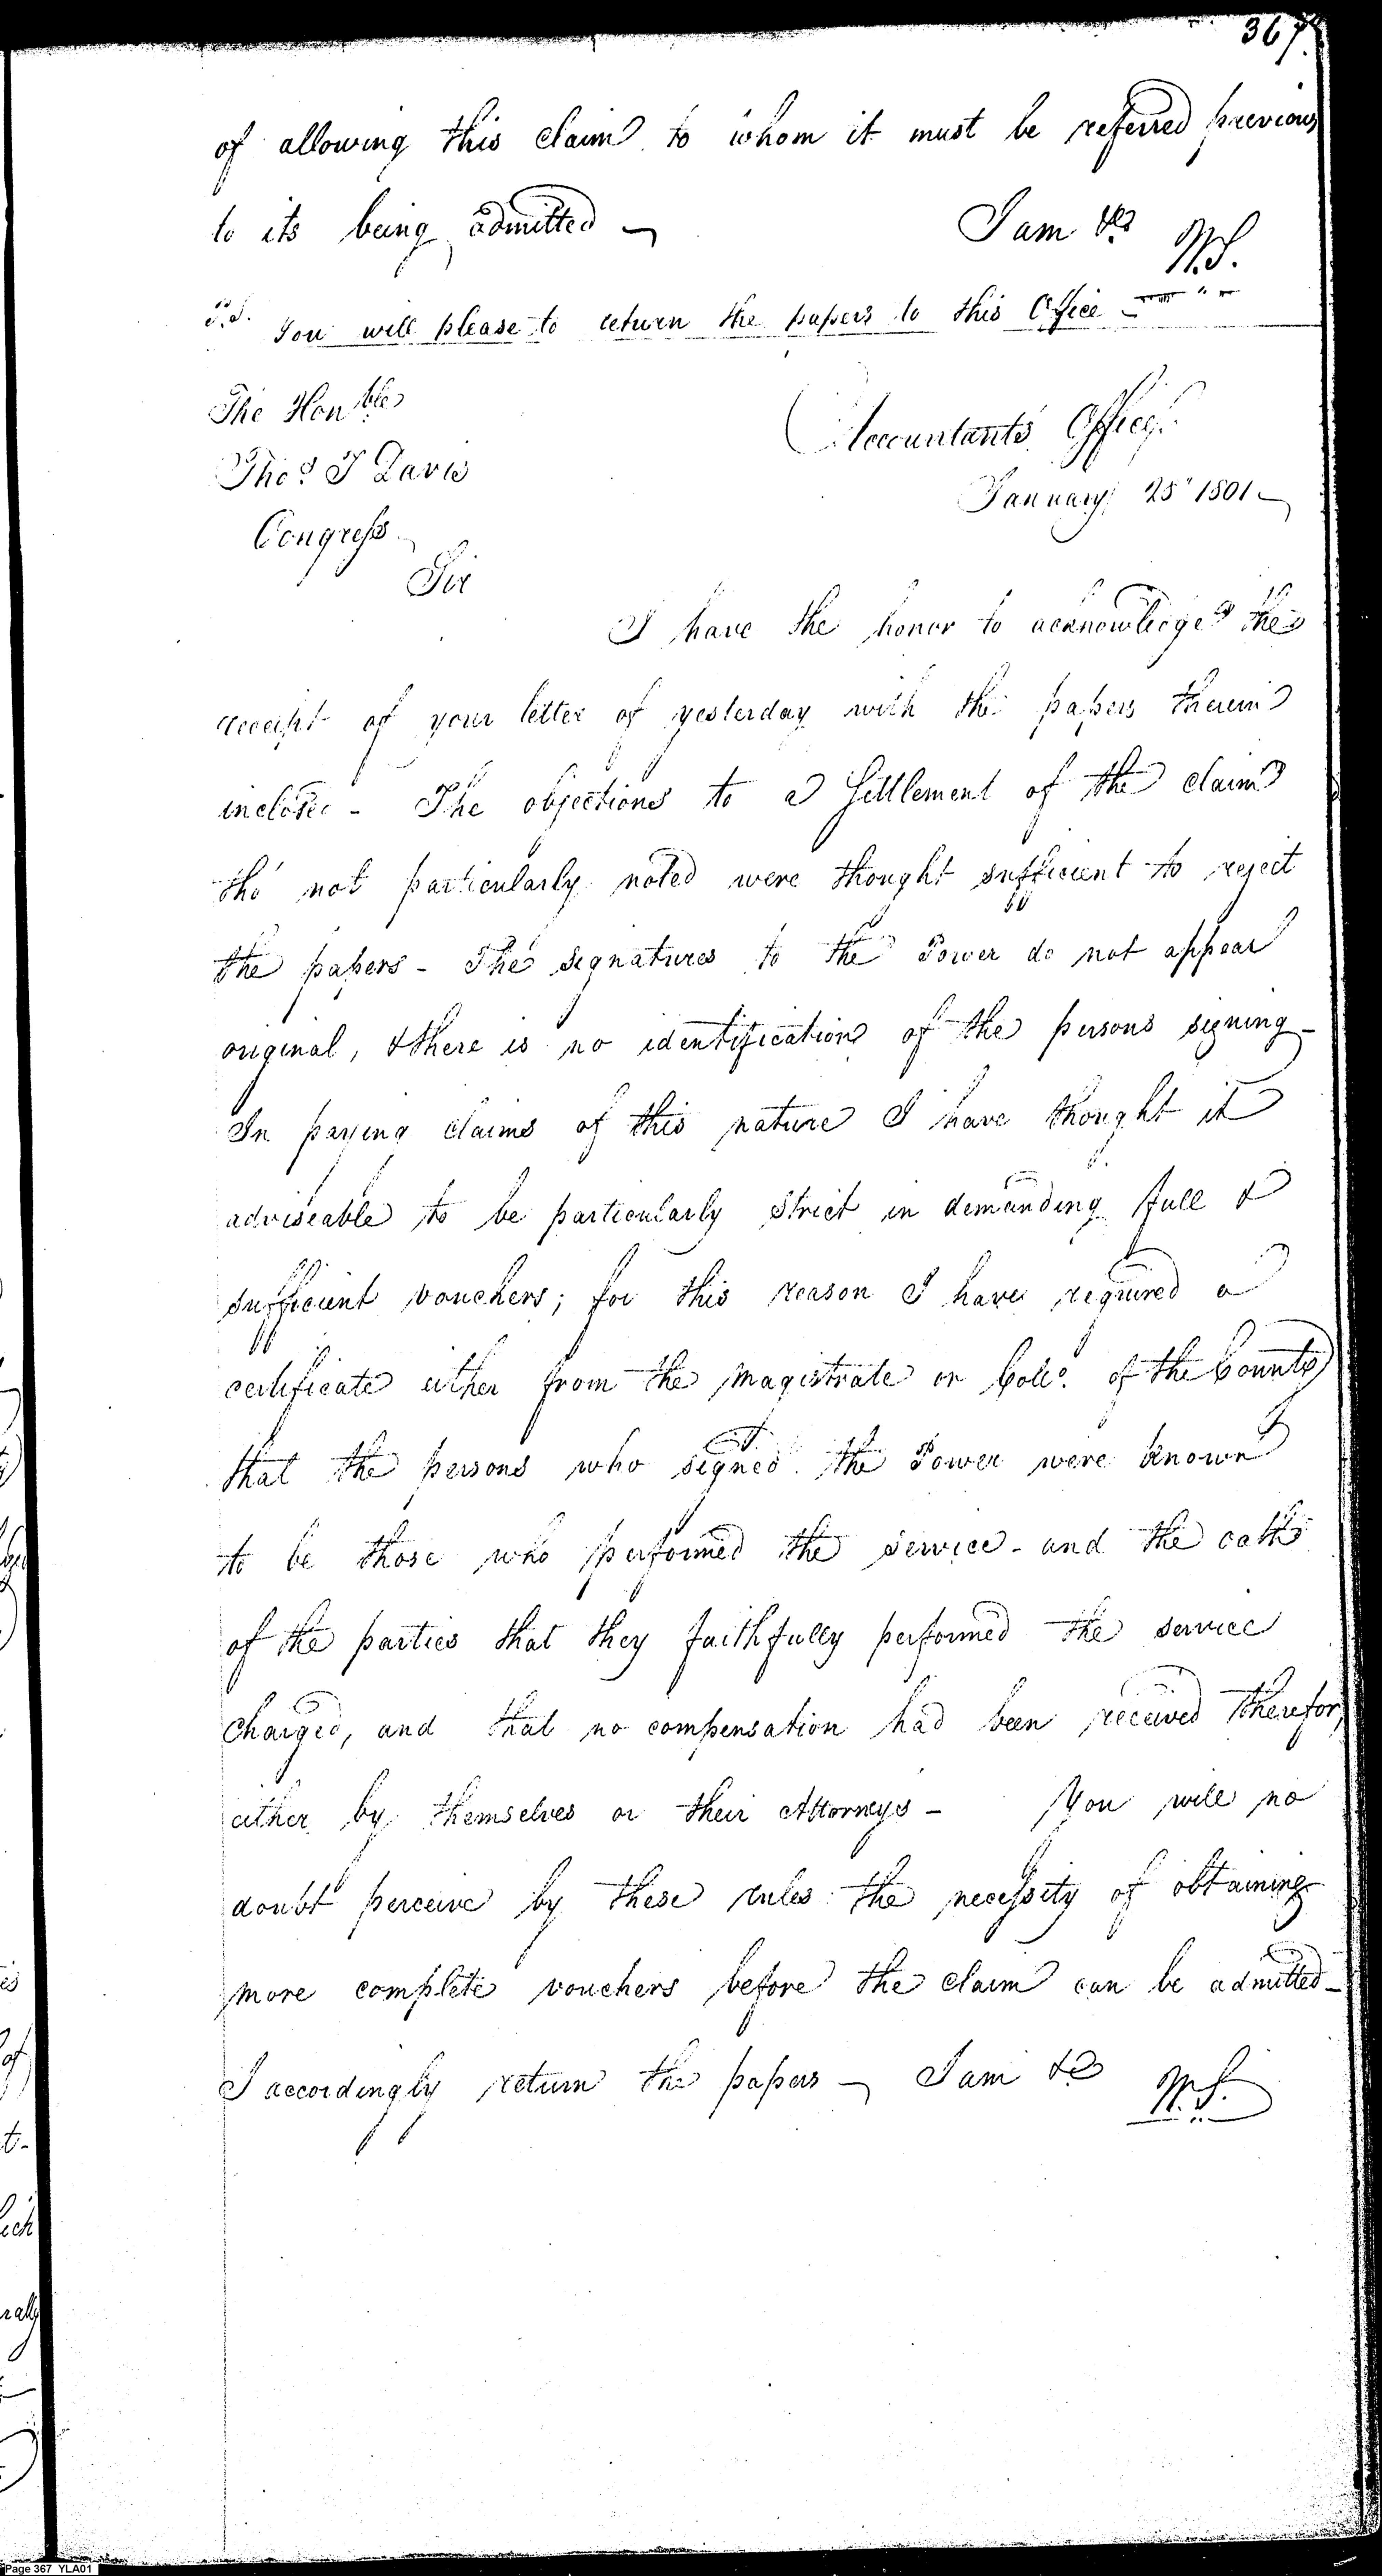 367.
of allowing this claim to whom it must be referred previous
to its being admitted —
I am &c
W.S.
P.S. You will please to return the papers to this Office —
The Honble
Accountants Office
Thos. T Davis
January 25" 1801 —
Congress
Sir
I have the honor to acknowledge the
receipt of your letter of yesterday with the papers therein
inclosed - The objections to a Settlement of the claim
tho' not particularly noted were thought sufficient to reject
the papers - The signatures to the Power do not appear
original, & there is no identification of the persons signing -
In paying claims of this nature I have thought it
adviseable to be particularly strict in demanding full &
sufficient vouchers; for this reason I have required a
certificate either from the Magistrate or Colo. of the County
that the persons who signed the Power were known
to be those who performed the service - and the oath
of the parties that they faithfully performed the service
charged, and that no compensation had been received therefor,
either by themselves or their Attorneys - You will no
doubt perceive by these rules the necessity of obtaining
more complete vouchers before the claim can be admitted -
I accordingly return the papers — I am &c
W.S.
Page 367 YLA01